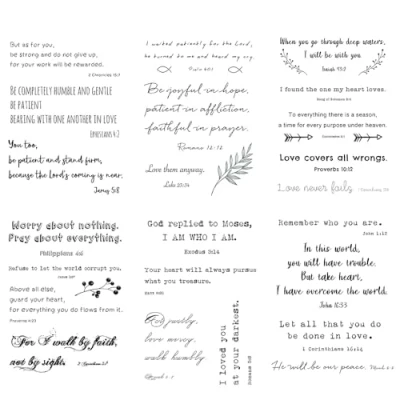 But as for you,
be strong and do not give up,
for your work will be rewarded.
2 Chronicles 15:7
BE COMPLETELY HUMBLE AND GENTLE
BE PATIENT
BEARING WITH ONE ANOTHER IN LOVE
EPHESIANS 4:2
You too,
be patient and stand firm,
because the Lord's coming is near.
I waited patiently for the Lord,
he turned to me and heard my cry.
Psalm 40:1
Be joyful in hope,
patient in affliction,
faithful in prayer.
Romans 12:12
Love them anyway.
Luke 23:34
When you go through deep waters,
I will be with you
Isaiah 43:2
I found the one my heart loves.
Song of Solomon 3:4
To everything there is a season,
a time for every purpose under heaven.
Ecclesiastes 3:1
Love covers all wrongs.
Proverbs 10:12
Love never fails
Worry about nothing.
Pray about everything.
Philippians 4:6
Refuse to let the world corrupt you.
Above all else,
guard your heart,
for everything you do flows from it.
Proverbs 4:23
For I walk by faith,
not by sight.
2 Corinthians 5:7
God replied to Moses,
I AM WHO I AM.
Exodus 3:14
Your heart will always pursue
what you treasure.
Act justly,
love mercy,
walk humbly.
I loved you
at your darkest.
Romans 5:8
Remember who you are.
John 1:12
In this world,
you will have trouble.
But take heart,
I have overcome the world.
John 16:33
Let all that you do
be done in love.
1 Corinthians 16:14
He will be our peace.